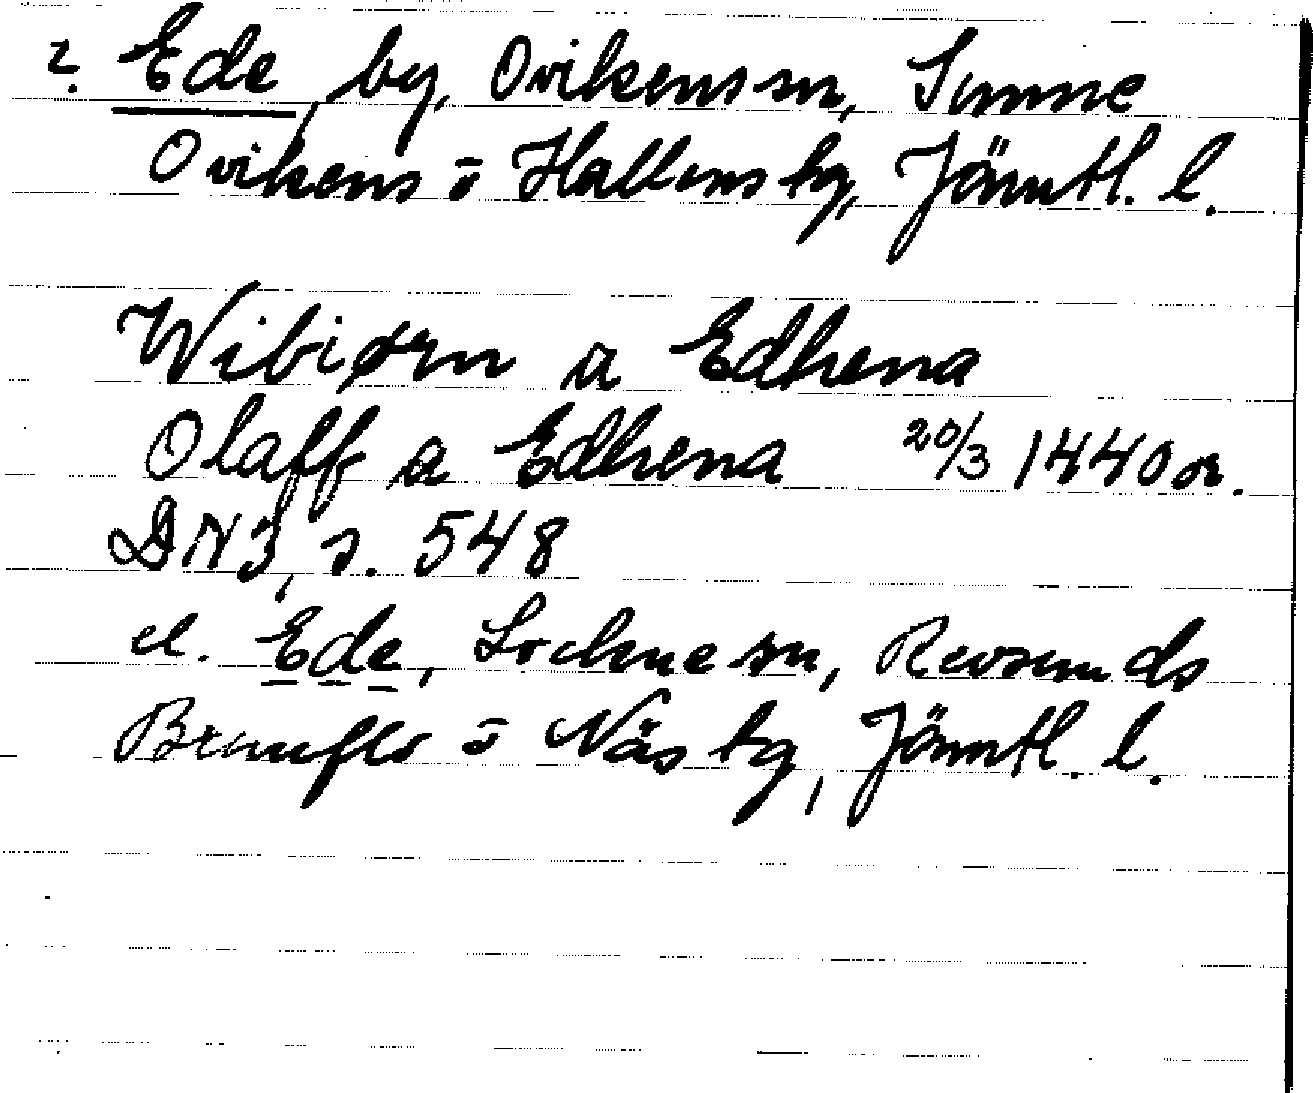 ?. Ede by, Ovikens sn, Sunne
Ovikens o Hallens tg, Jämtl. l.
Wibiørn a Edhena
Olaff a Edhena 20/3 1440 or.
DN 3, s. 548
el. Ede, Lockne sn, Revsunds
Brunflo o Näs tg, Jämtl. l.